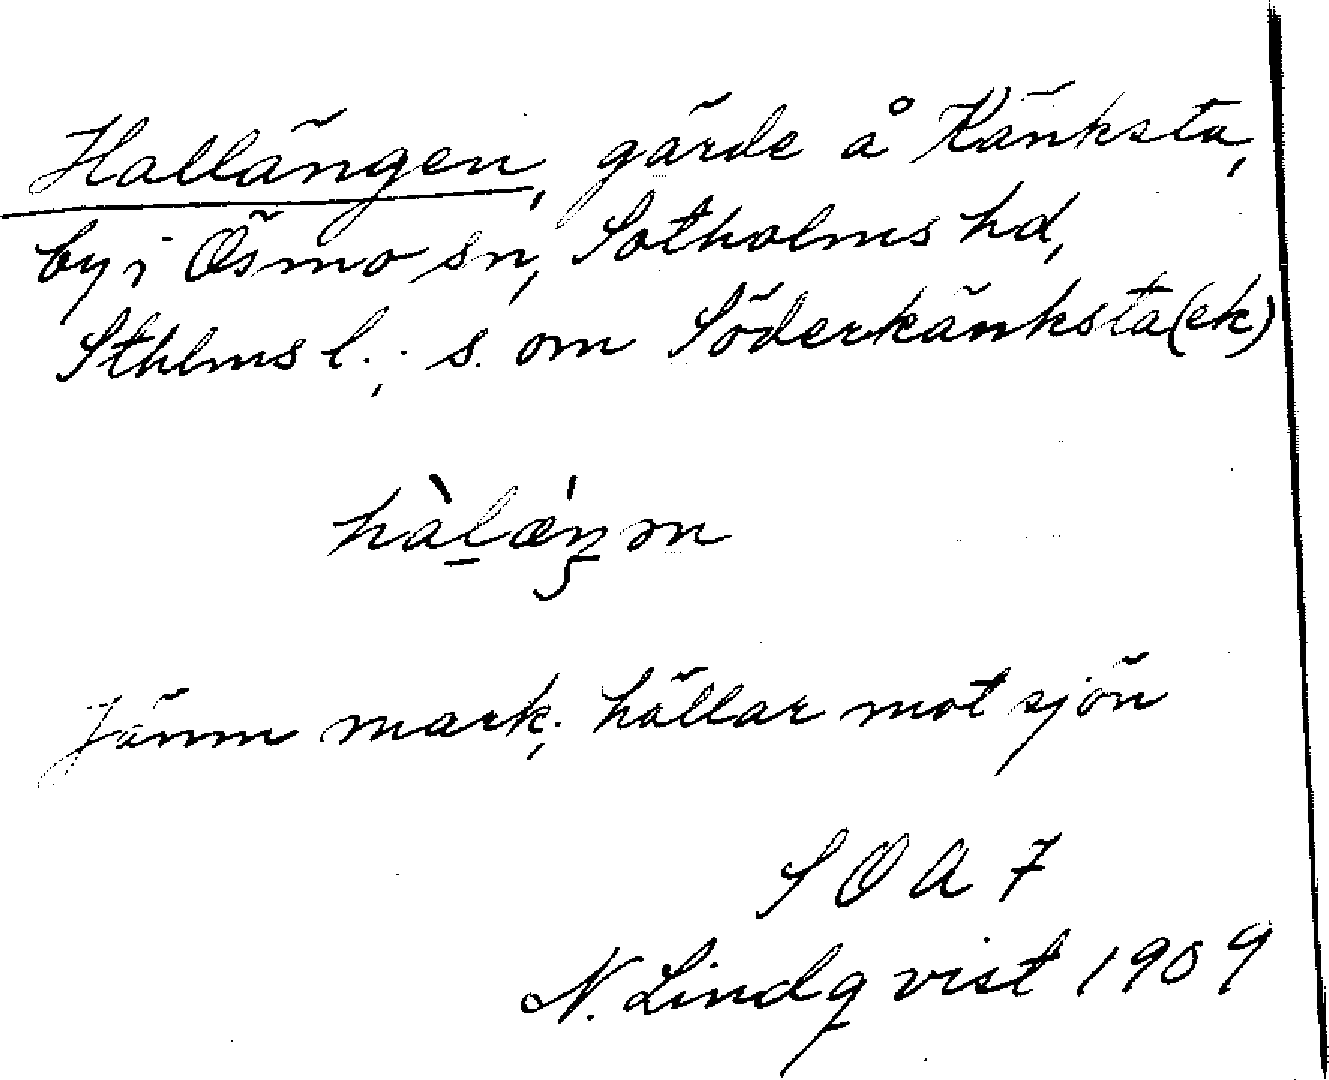 Hallängen, gärde å Känksta,
by i Ösmo sn, Sotholms hd,
Sthlms l.; s. om Söderkänksta(ek)
hàlæ̀ŋən
Jämn mark; hällar mot sjön
S O A 7
N. Lindqvist 1909